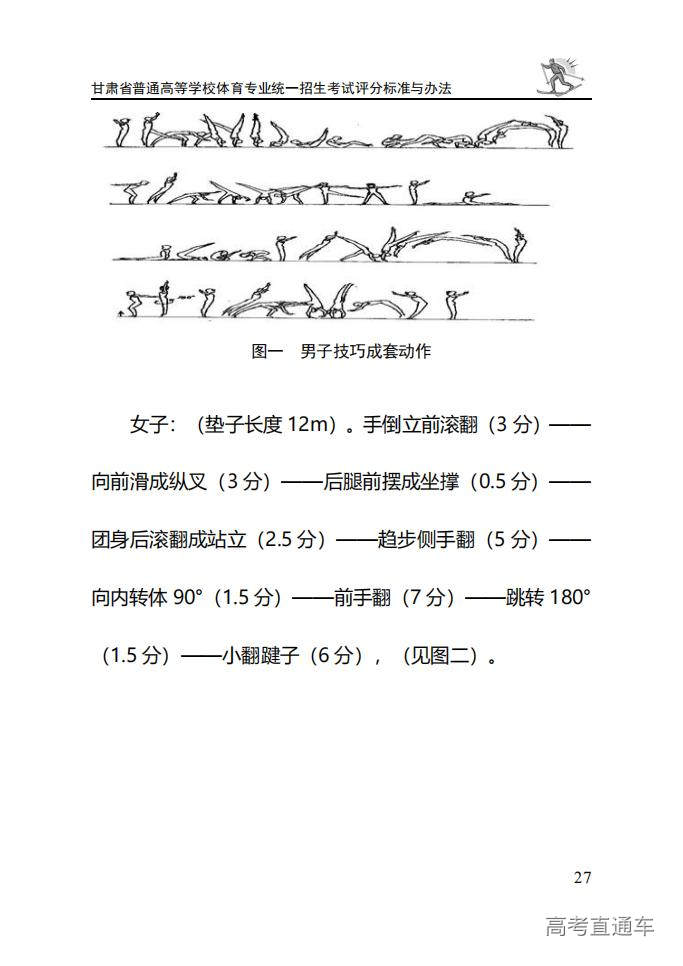 甘肃省普通高等学校体育专业统一招生考试评分标准与办法
图一 男子技巧成套动作
女子：（垫子长度 12m）。手倒立前滚翻（3 分）——
向前滑成纵叉（3 分）——后腿前摆成坐撑（0.5 分）——
团身后滚翻成站立（2.5 分）——趋步侧手翻（5 分）——
向内转体 90°（1.5 分）——前手翻（7 分）——跳转 180°
（1.5 分）——小翻踺子（6 分），（见图二）。
27
高考直通车